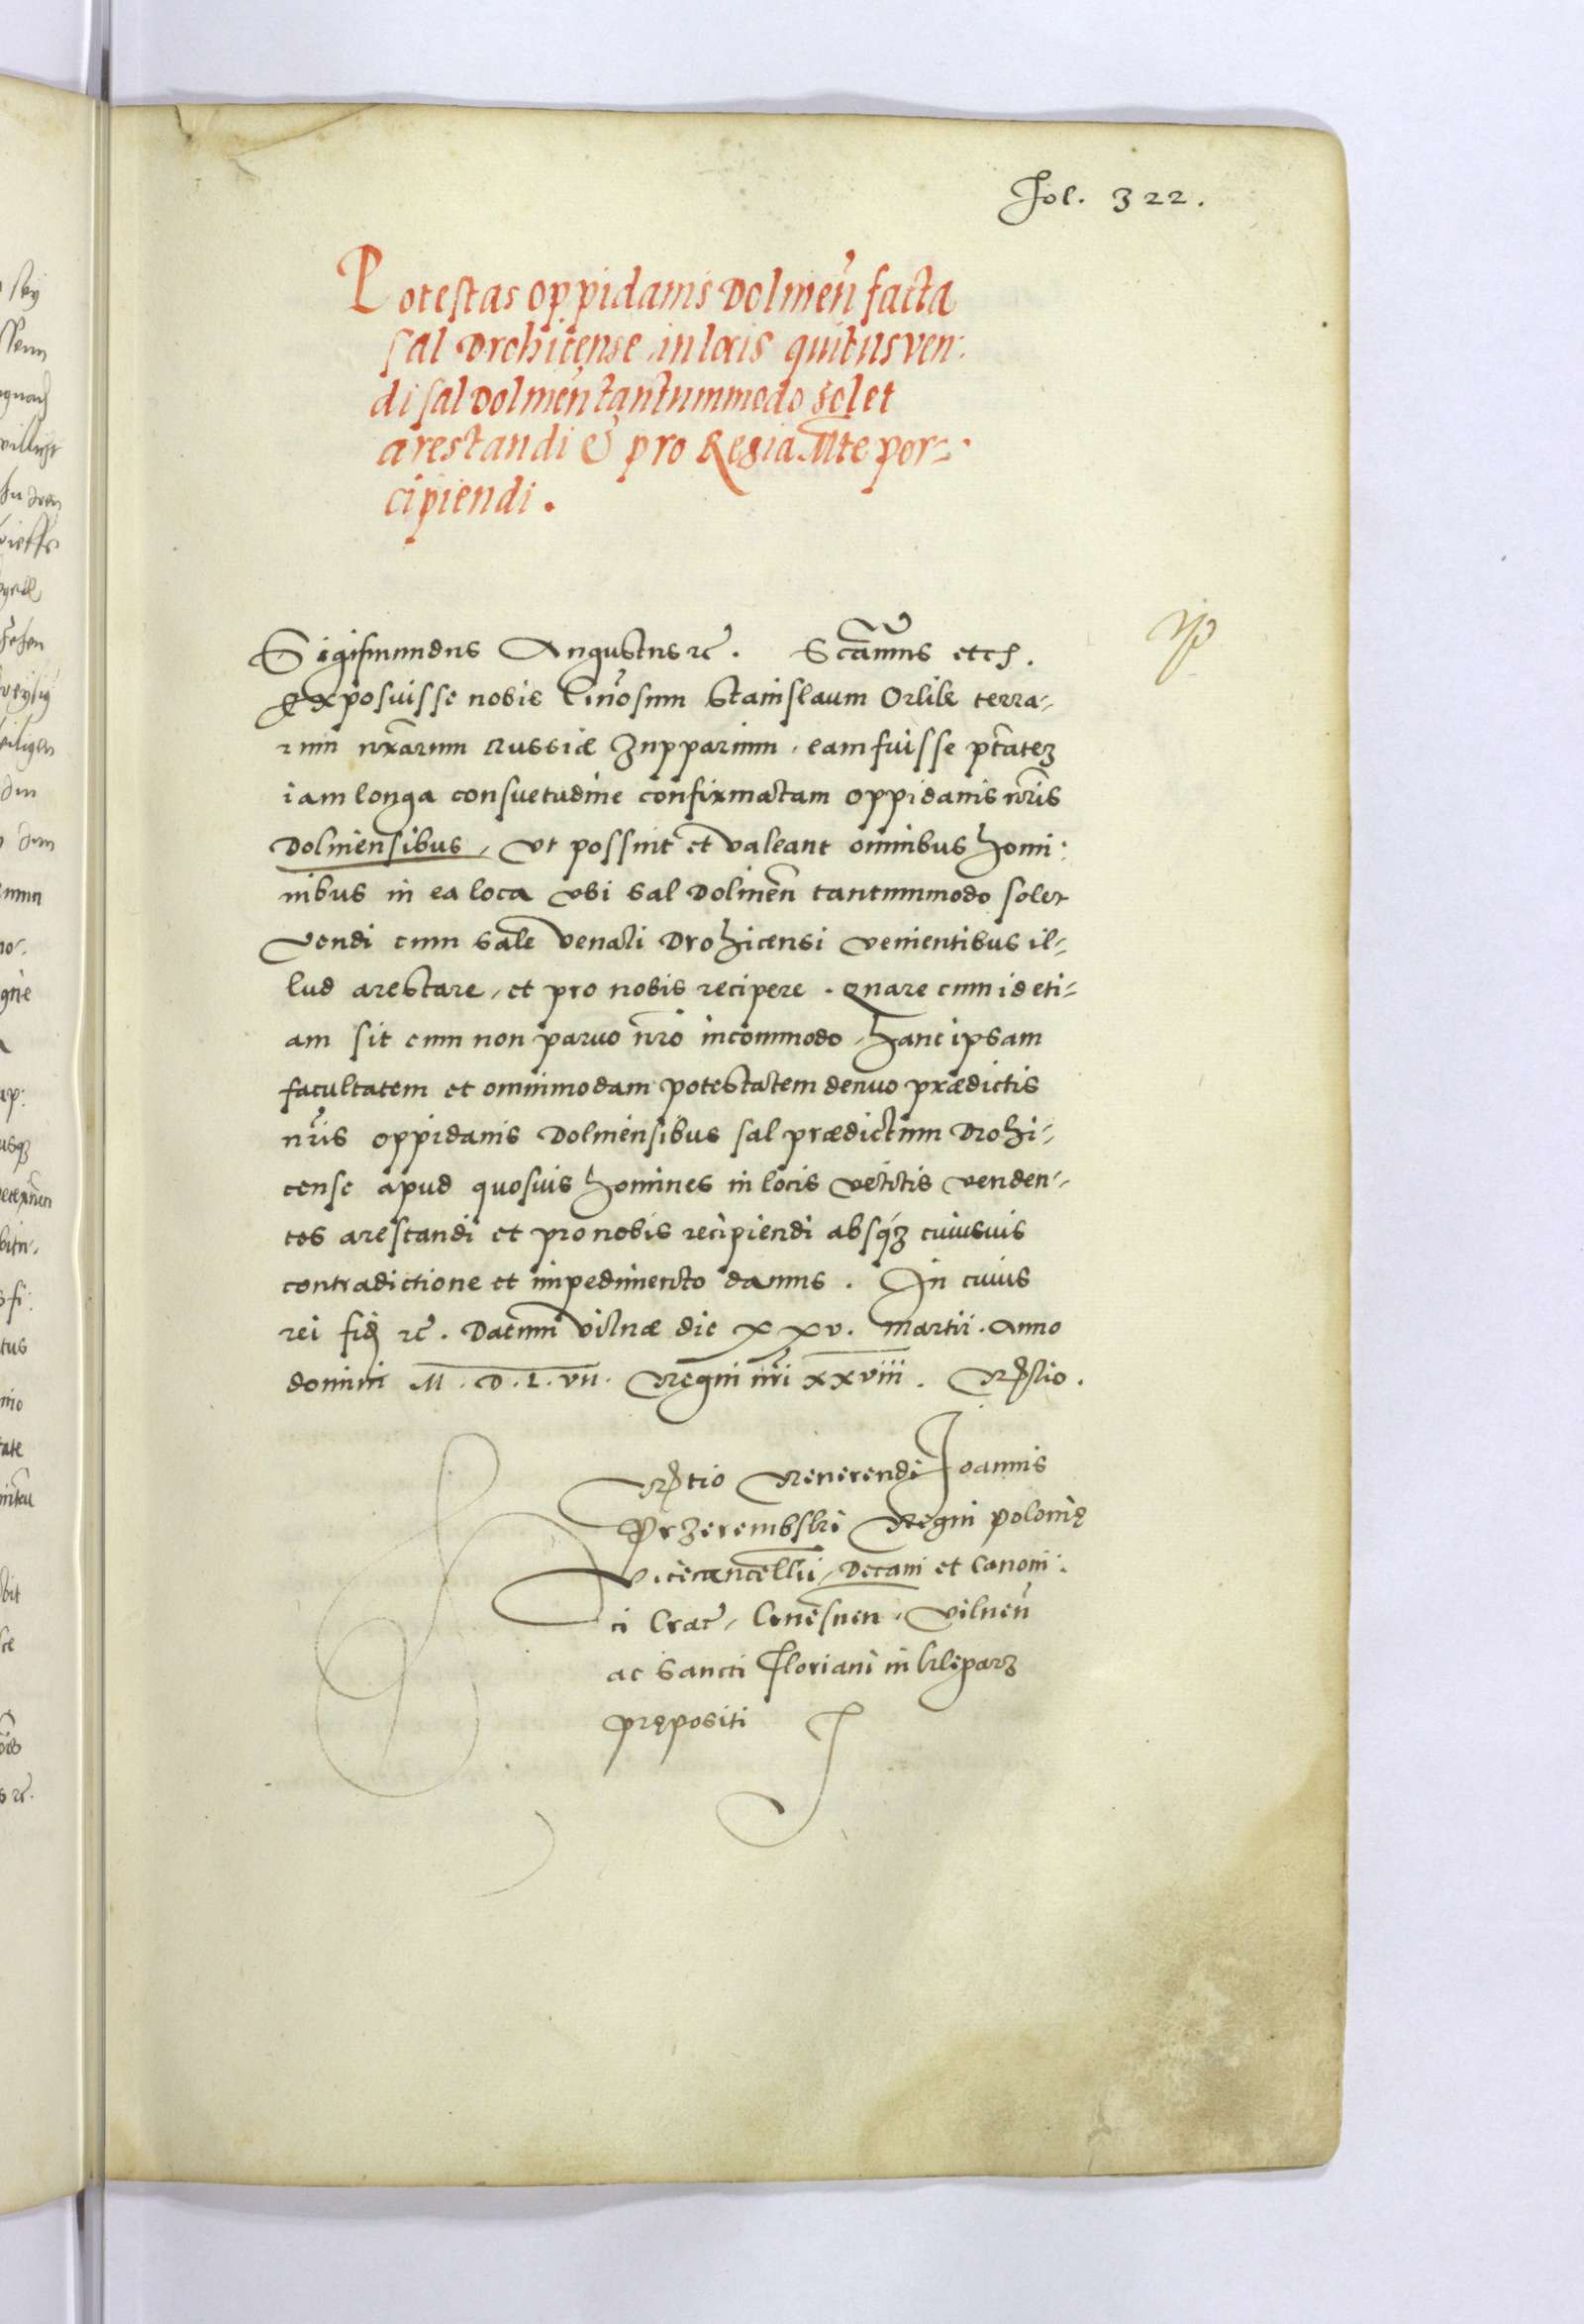 Fol. 322.
Potestas oppidanis Dolinen̄ facta
sal Drohicense in locis quibus ven:
di sal Dolinen̄ tantummodo solet
arestandi & pro Regia Mte per-
cipiendi.
Sigismundus Augustus etc. Scamus etcs.
Exposuisse nobis Gn̄osum Stanislaum Orlik terra-
rum nrarum Russiæ Zupparium, eam fuisse ptatez
iam longa consuetudine confirmatam oppidanis nris
Dolinensibus, ut possint et valeant omnibus homi:
nibus in ea loca ubi sal Dolinen̄ tantummodo solet
vendi cum sale venali Drohicensi venientibus il-
lud arestare, et pro nobis recipere. Quare cum id eti-
am sit cum non parvo nro incommodo, hanc ipsam
facultatem et omnimodam potestatem denuo prædictis
nris oppidanis Dolinensibus sal prædictum Drohi-
cense apud quosvis homines in locis vetitis venden-
tes arestandi et pro nobis recipiendi absq3 cuiusvis
contradictione et impedimento damus. In cuius
rei fid etc. Datum Vilnæ die XXV. Martii. Anno
domini M.D.L.VII. Regni nri XXVIII. Rlio.
Rtio Reverendi Ioannis
Przerembski Regni Polonię
Vicecancellii, Decani et Canoni:
ci Crac, Gnesnen, Vilnen̄
ac Sancti Floriani in Kleparz
prępositi